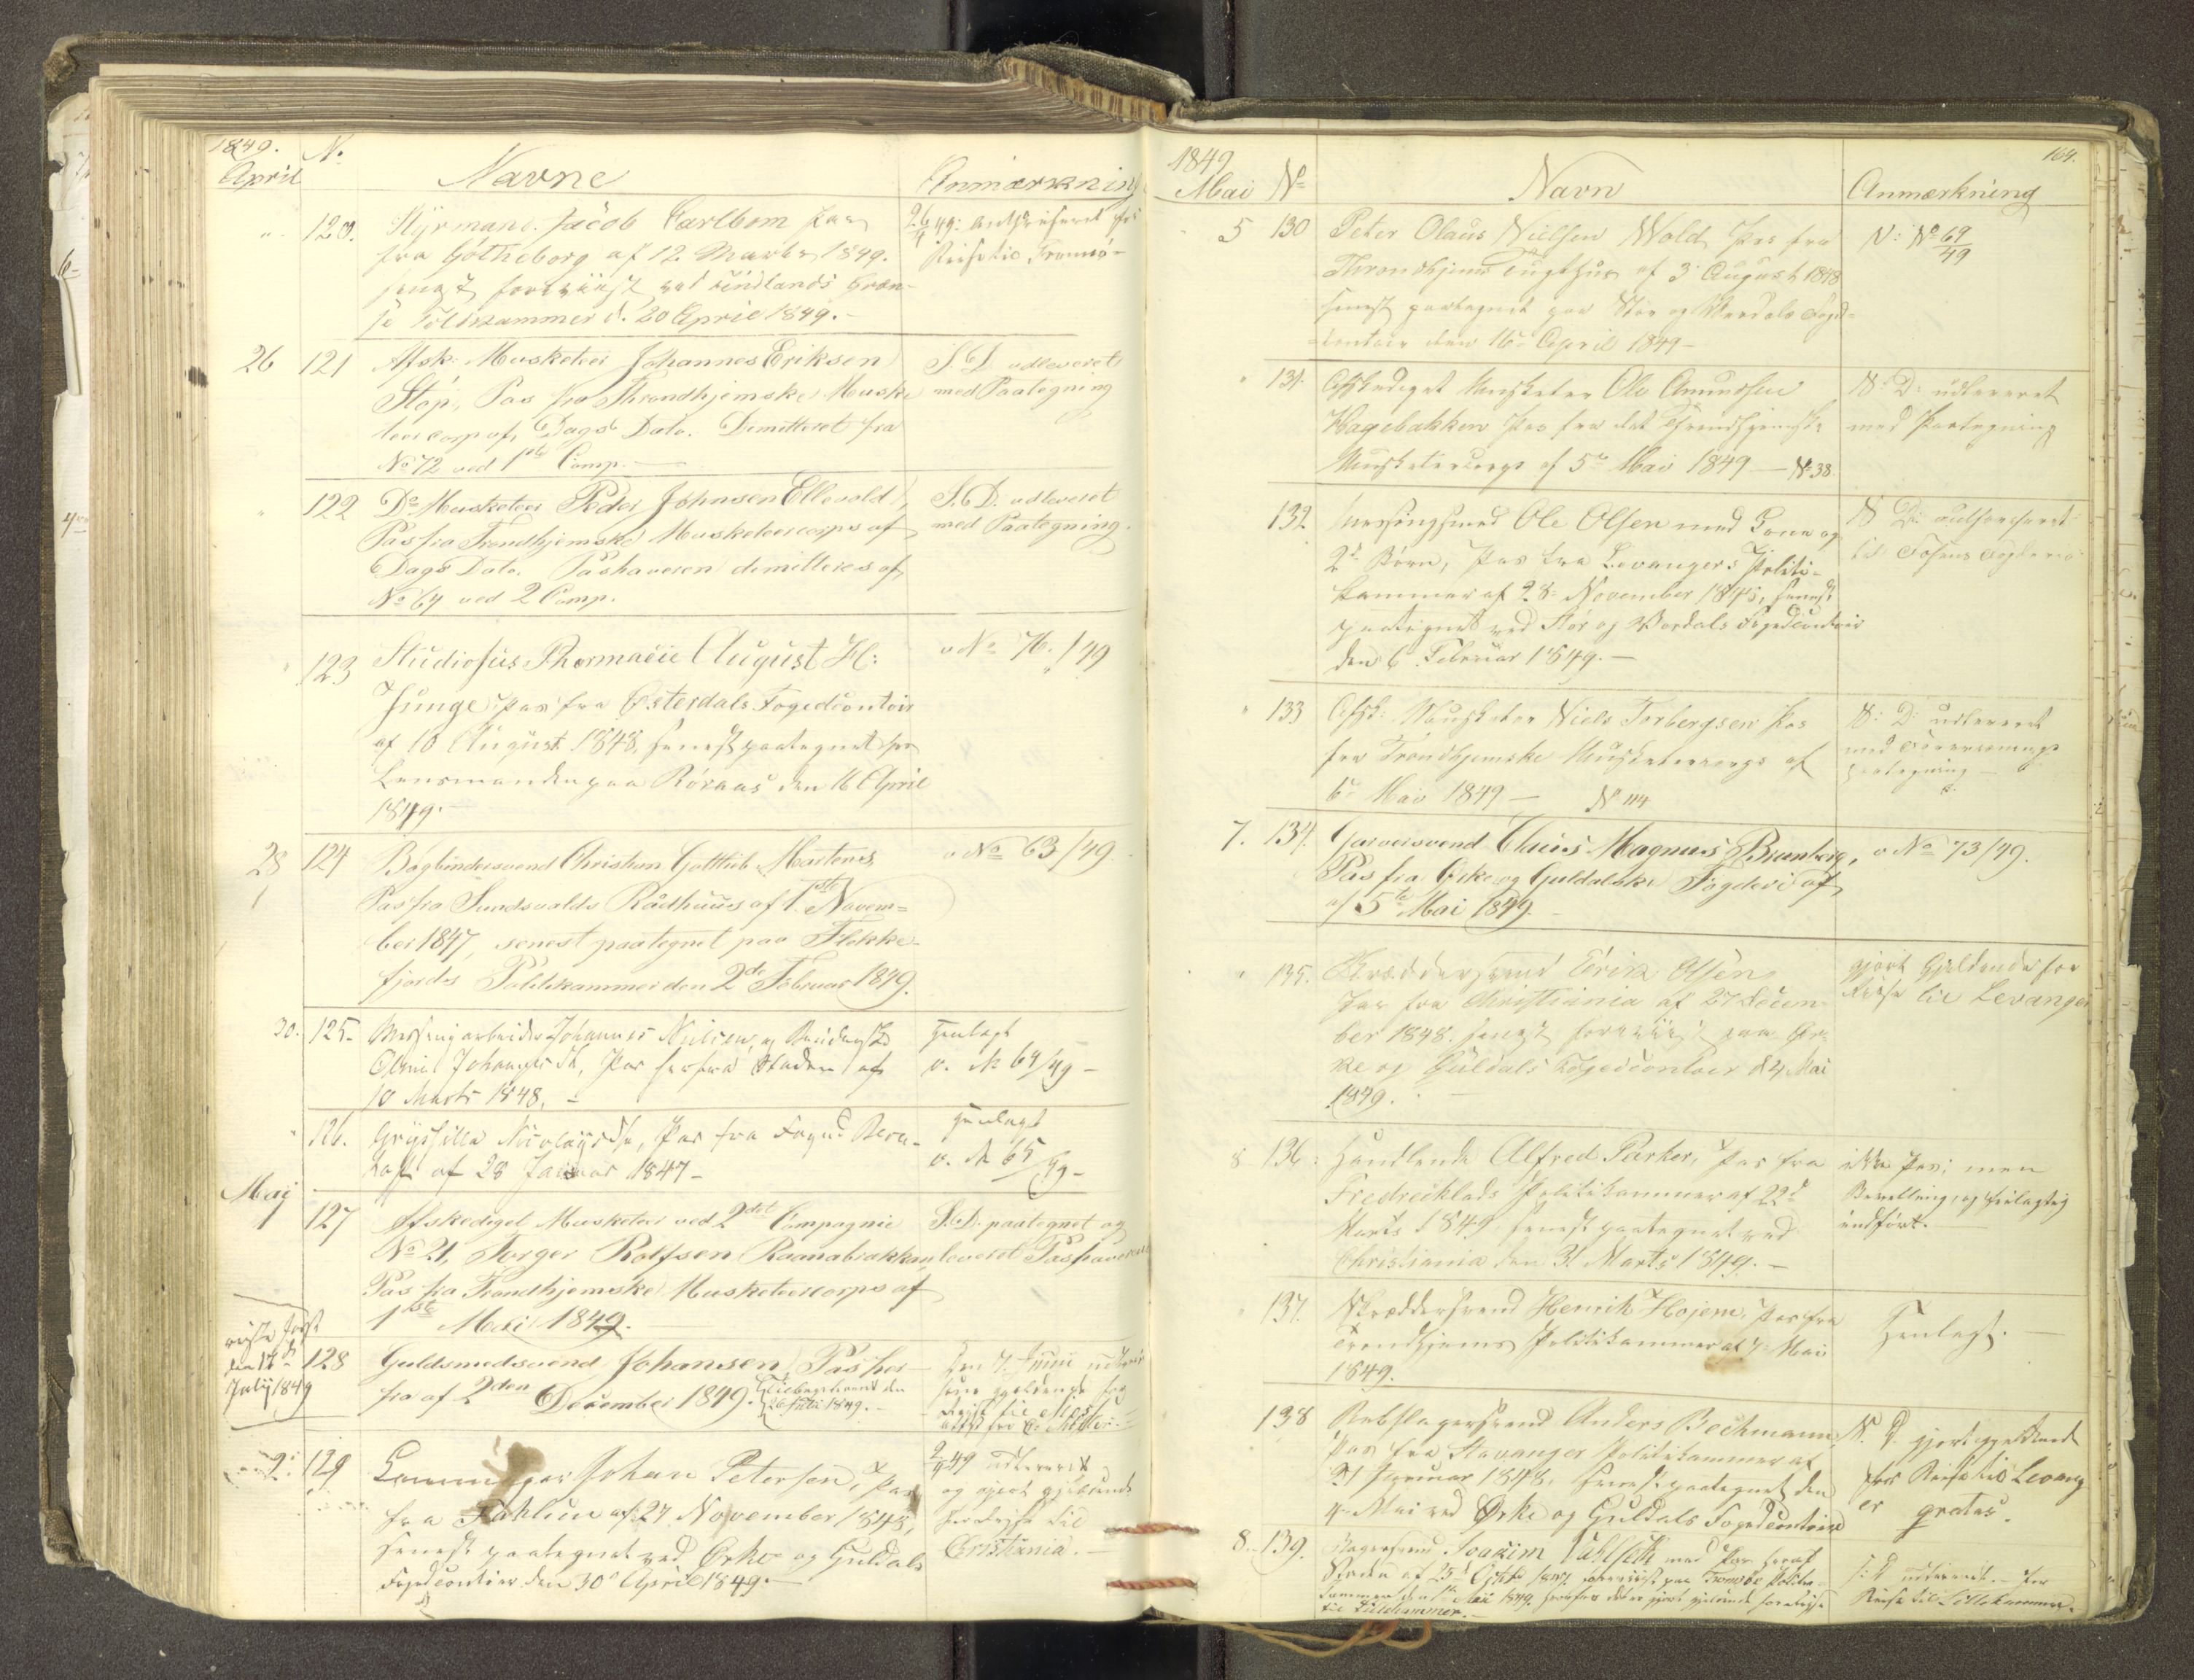 1849.
April
N.
Navne
Anmærkning
120. Styrmand Jacob Carlbom Pas
fra Götheborg af 12. Marts 1849.
senest foreviist ved Sindlands Græn-
se Toldkammer d. 20 April 1849.
26/4 49: for
Reise til Tromsö
26 121 Afsk: Musketeer Johannes Eriksen
Støp, Pas fra Throndhjemske Muske
teercorps af Dags Dato. Demitteret fra
No 72 ved 1ste Comp.
S. D. udleveret
med Paategning
122 Do Musketeer Peder Johnsen Ellevold,
Pas fra Trondhjemske Musketeercorps af
Dags Dato. Pashaveren dimitteres af
No 64 ved 2 Comp.
S. D. udleveret
med Paategning.
123 Studiosus Pharmaciæ August H:
Junge, Pas fra Østerdals Fogedcontoir
af 10 August 1848, senest paategnet hos
Lensmanden paa Röraas den 16 April
1849.
v No 76./49
28 124 Bogbindersvend Christian Gottlieb Martens
Pas fra Sundsvalds Rådhuus af 1ste Novem-
ber 1847, senest paategnet paa Flekke-
fjords Politikammer den 2de Februar 1849.
v No 63/49.
30. 125. Messingarbeider Johannes Nielsen, og
Johannes Pas herfra Staden af
10 Marts 1848.
Henlagt
v. No 64/49
126. Pas fra Foged
af 28 Januar 1847
Henlagt
v. No 65/49
Maj
1 127 Afskediget Musketeer ved 2det Compagnie
No 21, Torger Rolfsen Raanabrakkan
Pas fra Trondhjemske Musketeercorps af
1ste Mai 1849.
S. D. paategnet og
leveret Pashaveren
reiste først
den
July 1849
128 Guldsmedsvend Johansen, Pas her-
fra af 2den December 1849. Tilbageleveret den
26 Juli 1849.
Den 7. Junii
gjældende for
Reise til
2. 129 Johan Petersen, Pas
fra Fahlun af 27 November 1848,
senest paategnet ved Orke og Guldals
Fogedcontoir den 30 April 1849.
2/5 49 udleveret
og gjort gjeldende
for Reise til
Cristiania.
1849
Mai
No
Navn
Anmærkning
164.
5 130 Peter Olaus Nielsen Wold, Pas fra
Throndhjems Tugthuus af 3 August 1848
senest paategnet paa Stør og Værdals Foged-
contoir den 16 April 1849
V: No 69/49
131. Afskediget Musketer Ole Amundsen
Hagebakken Pas fra det Throndhjemske
Musketercorps af 5te Mai 1849 — No 38
S: D: udleveret
med Paategning
132. Messingsmed Ole Olsen med Kone og
2de Børn, Pas fra Levangers Politi-
kammer af 28 November 1848, senest
paategnet ved Stør og Værdals Fogedcontoir
den 6 Februar 1849.
S D:
til Fosens Fogderie
133 Afsk: Musketer Niels Torbergsen Pas
fra Trondhjemske Musketercorps af
6te Mai 1849 — No 114
S: D: udleveret
med
paategning
7. 134. Garversvend Claus Magnus Brunberg,
Pas fra Orke og Guldalske Fogderi af
af 5te Mai 1849.
v No 73/49.
135. Skræddersvend Erik Olsen
Pas fra Christiania af 27 Decem-
ber 1848. senest foreviist paa Or-
ke og Guldals Fogedcontoir d 4 Mai
1849.
gjort Gjeldende for
Reise til Levanger
8 136. Handlende Alfred Parker, Pas fra
Fredrickhalds Politikammer af 22d
Marts 1849 senest paategnet ved
Christiania den 31 Marts 1849.
ikke Pas; men
Bevilling,
indført.
137. Skræddersvend Henrik Hojem, Pas fra
Trondhjems Politikammer af 7 Mai
1849.
Henlagt.
138 Rebslagersvend Anders Bechmann
Pas fra Stavanger Politikammer af
31 Januar 1848, senest paategnet den
4 Mai ved Orke og Guldals Fogedcontoir
S. D. gjort gjeldende
for Reise til Levang
er gratis.
8. 139. Bagersvend Joakim med Pas heraf
Staden af 25 foreviist paa Tromsöe Politie-
kammer den Mai 1849, gjort gjeldende for Reise
til Lillehammer.
S: D udleveret. for
Reise til Lillehammer.